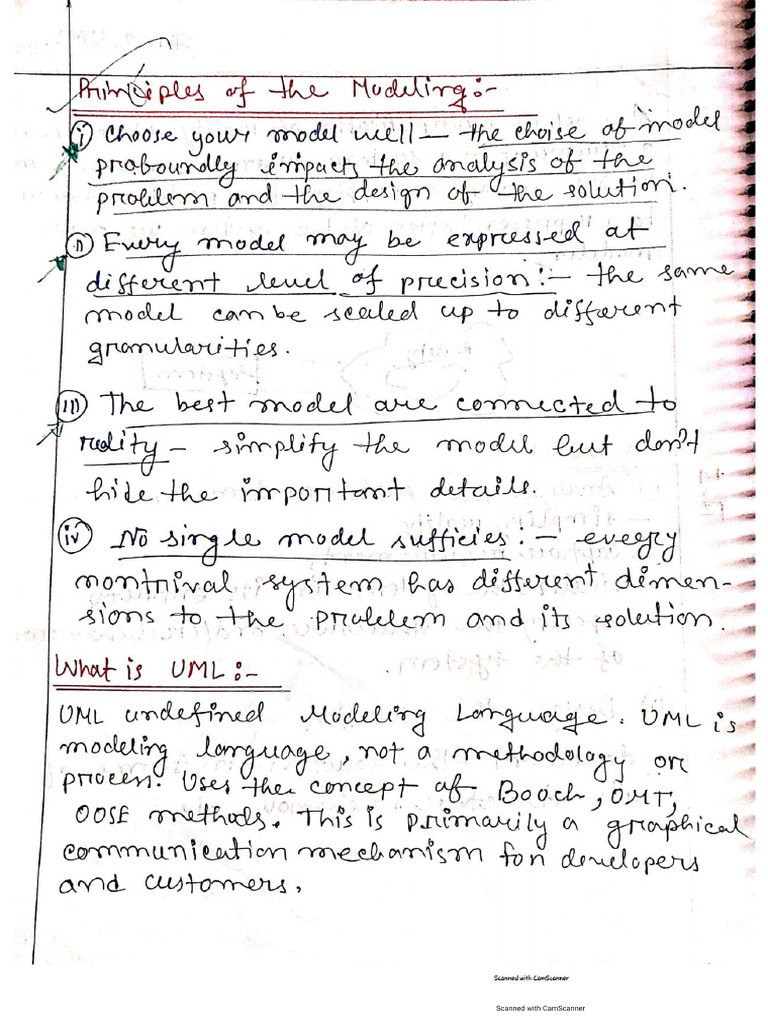 Principles of the Modeling:-
i) Choose your model well - the choise of model
proboundly impacts the analysis of the
problem and the design of the solution.
ii) Every model may be expressed at
different level of precision:- the same
model can be scaled up to different
granularities.
iii) The best model are connected to
reality - simplify the model but don't
hide the important details.
iv) No single model sufficies:- eveery
nontrival system has different dimen-
sions to the problem and its solution.
What is UML:-
UML undefined Modeling Language. UML is
modeling language, not a methodology or
process. Uses the concept of Booch, OMT,
OOSE methods. This is primarily a graphical
communication mechanism for developers
and customers.
Scanned with CamScanner
Scanned with CamScanner